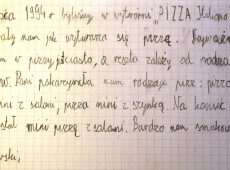 1994 r. byliśmy w wytwórni "PIZZA Italiano
nam jak wytwarza się pizzę.
w pizzy ciasto, a reszta zależy od
Pani pokazywała nam rodzaje pizz:
z salami, pizza mini z szynką. Na koniec
mini pizzę z salami. Bardzo nam